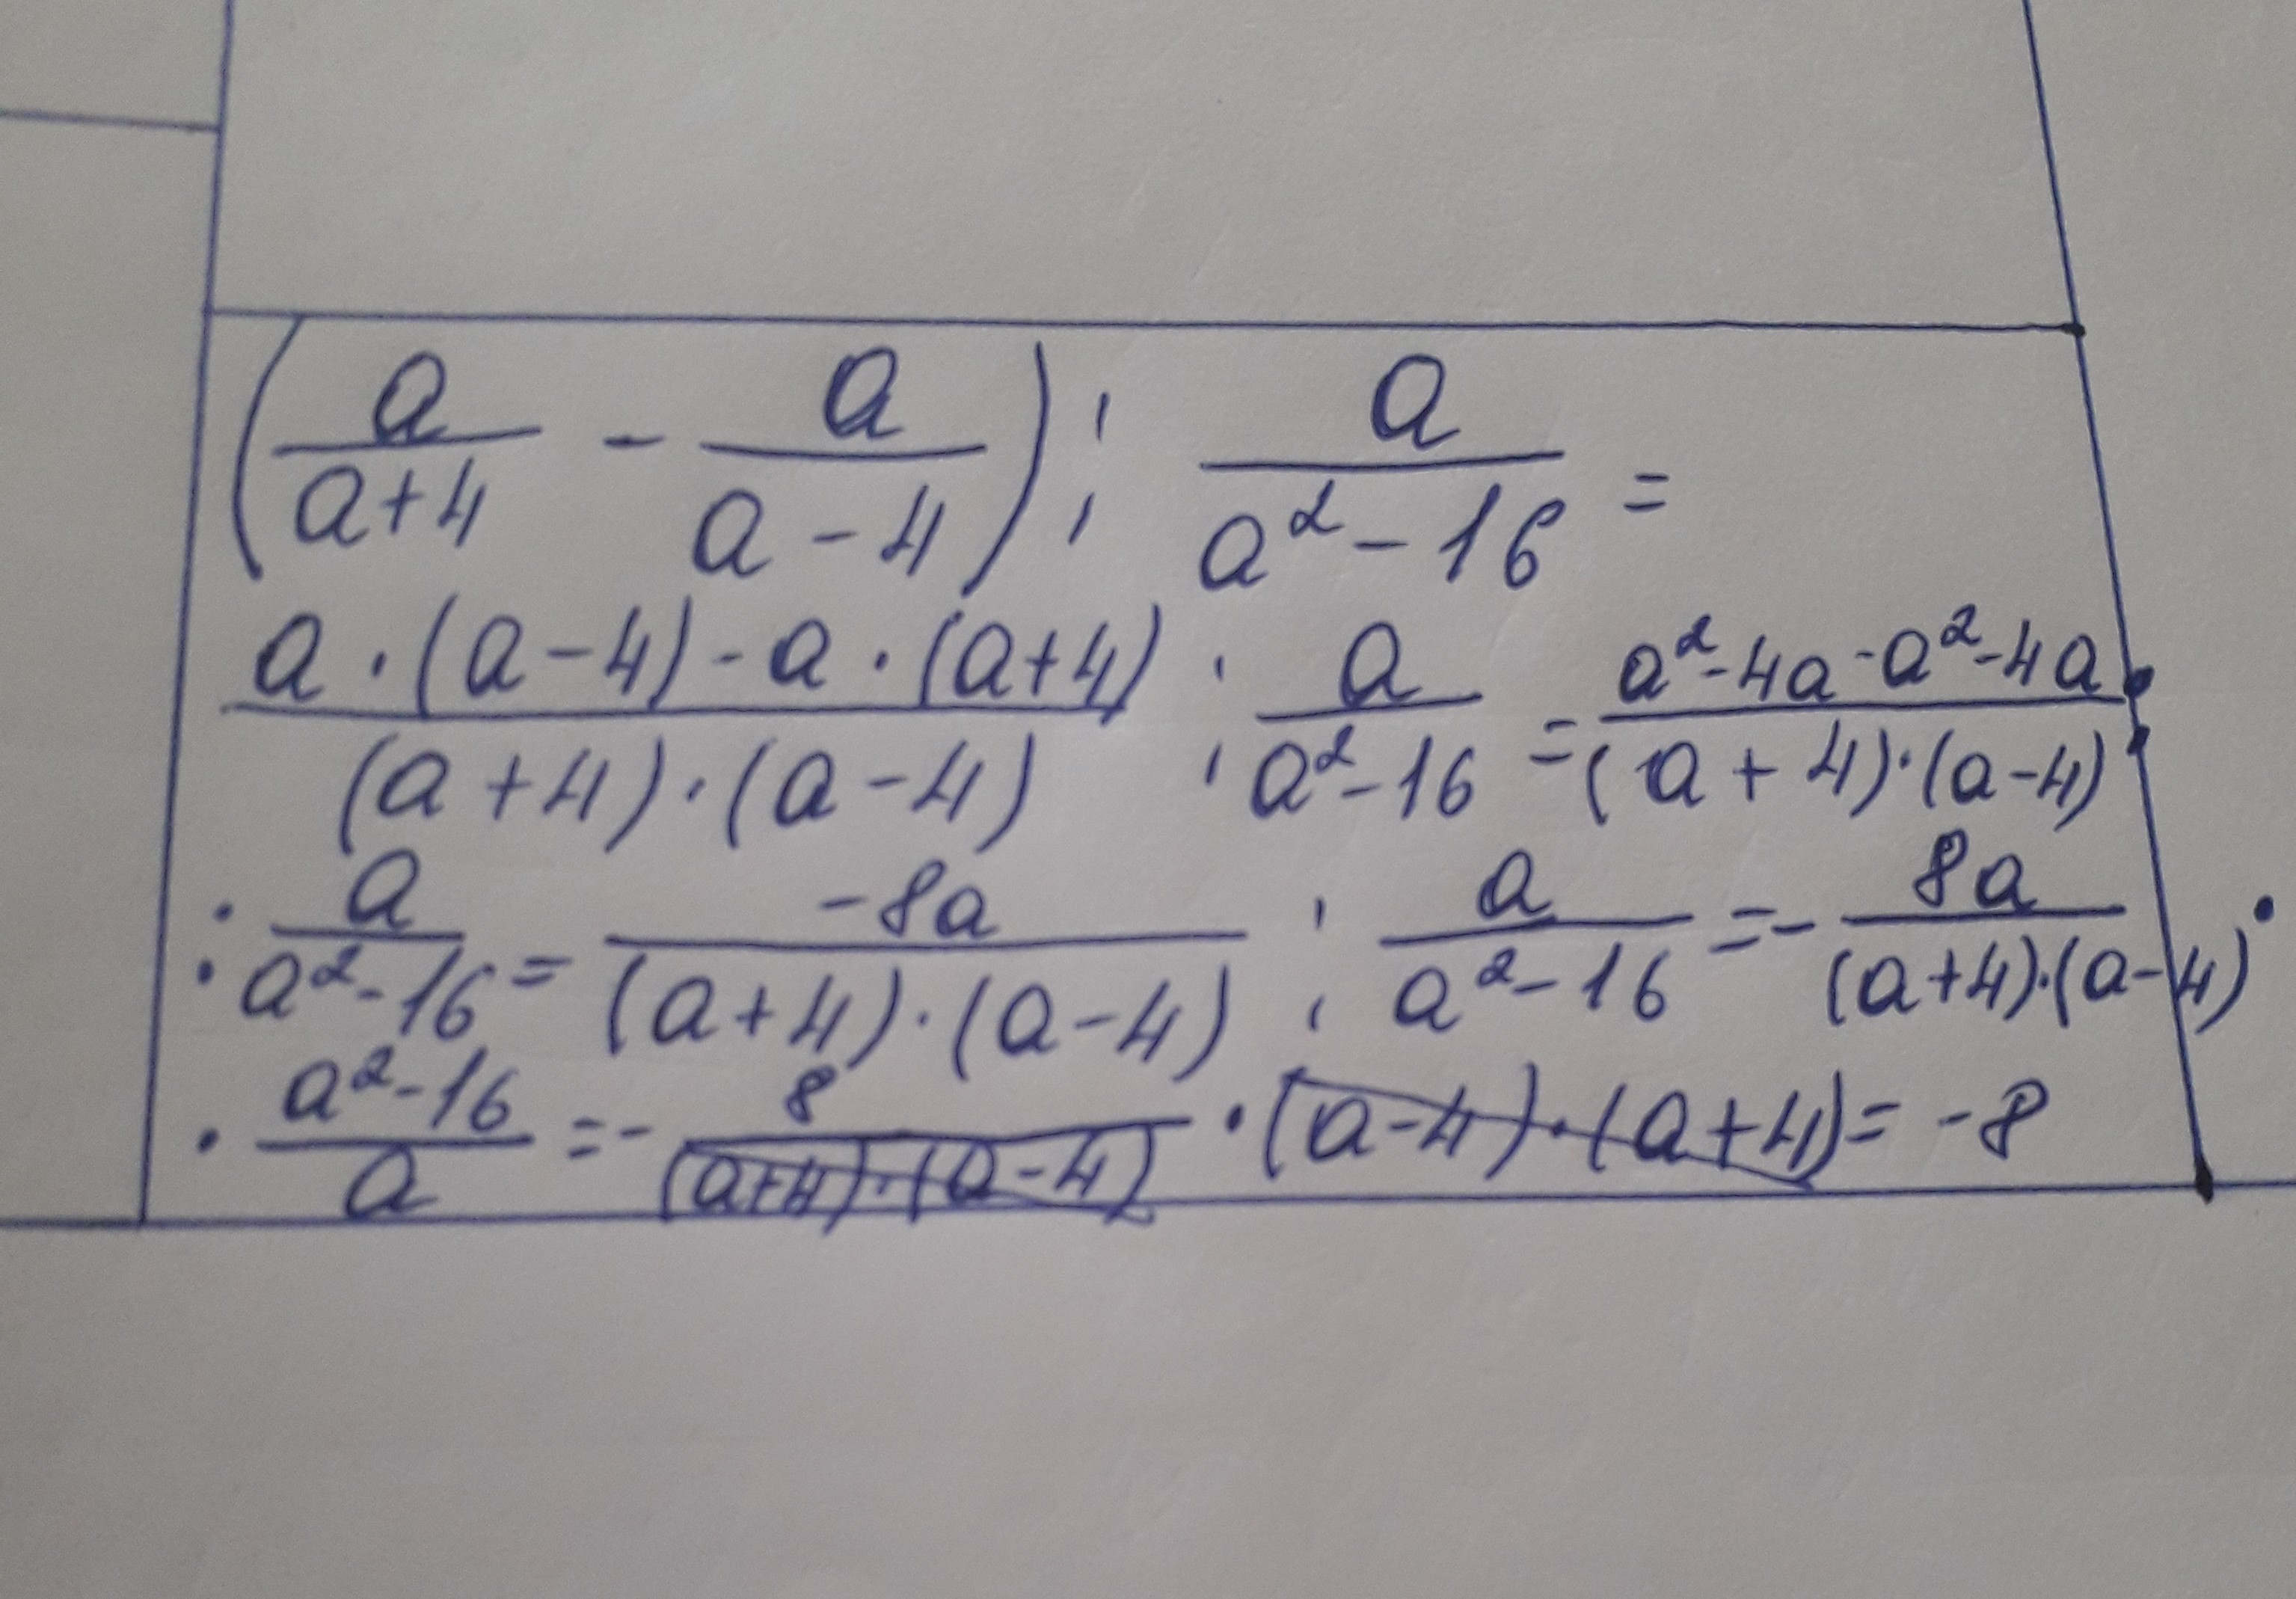 (a/(a+4) - a/(a-4)) : a/(a²-16) =
(a·(a-4)-a·(a+4))/((a+4)·(a-4)) : a/(a²-16) = (a²-4a-a²-4a)/((a+4)·(a-4)) :
: a/(a²-16) = -8a/((a+4)·(a-4)) : a/(a²-16) = - 8a/((a+4)·(a-4)) ·
· (a²-16)/a = - 8/((a+4)·(a-4)) · (a-4)·(a+4) = -8